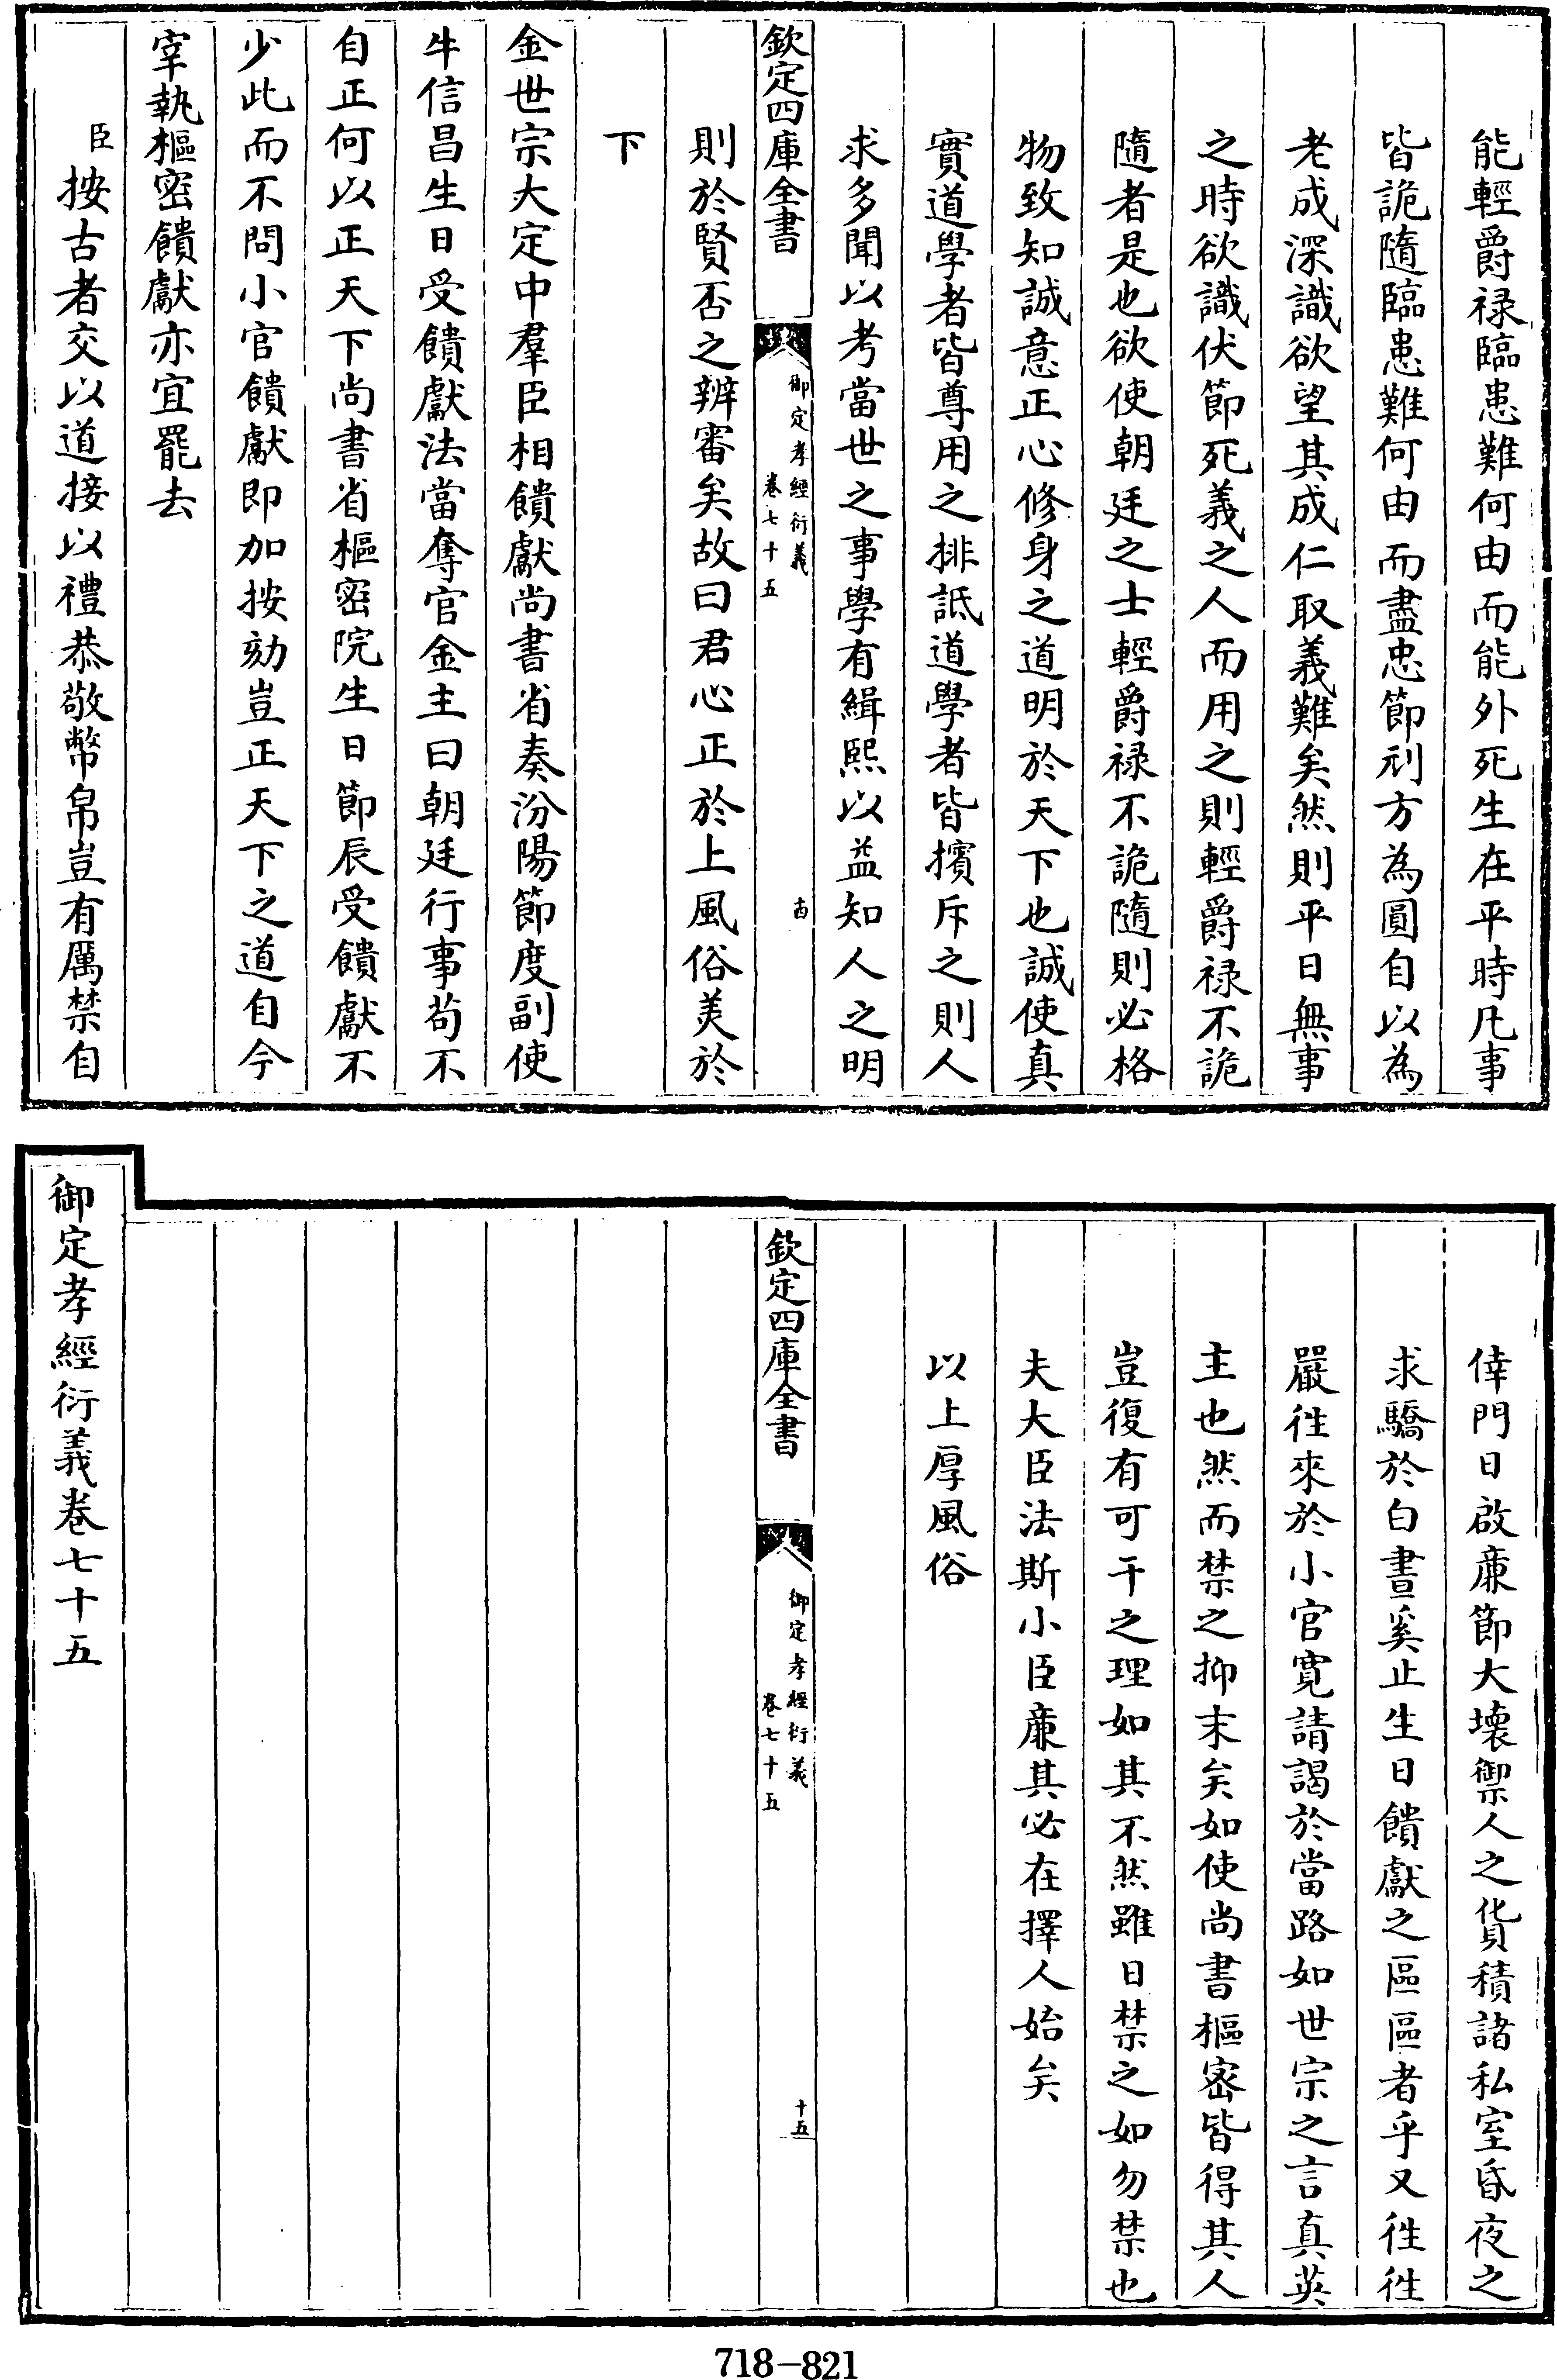 能輕爵祿臨患難何由而能外死生在平時凡事
皆詭隨臨患難何由而盡忠節刓方為圓自以為
老成深識欲望其成仁取義難矣然則平日無事
之時欲識伏節死義之人而用之則輕爵祿不詭
隨者是也欲使朝廷之士輕爵祿不詭隨則必格
物致知誠意正心修身之道明於天下也誠使真
實道學者皆尊用之排詆道學者皆擯斥之則人
求多聞以考當世之事學有緝熙以益知人之明
欽定四庫全書
御定孝經衍義
卷七十五
十四
則於賢否之辨審矣故曰君心正於上風俗美於
下
金世宗大定中羣臣相饋獻尚書省奏汾陽節度副使
牛信昌生日受饋獻法當奪官金主曰朝廷行事苟不
自正何以正天下尚書省樞密院生日節辰受饋獻不
少此而不問小官饋獻即加按劾豈正天下之道自今
宰執樞密饋獻亦宜罷去
臣按古者交以道接以禮恭敬幣帛豈有厲禁自
倖門日啟廉節大壞禦人之貨積諸私室昏夜之
求驕於白晝奚止生日饋獻之區區者乎又徃徃
嚴徃來於小官寬請謁於當路如世宗之言真英
主也然而禁之抑末矣如使尚書樞密皆得其人
豈復有可干之理如其不然雖日禁之如勿禁也
夫大臣法斯小臣廉其必在擇人始矣
以上厚風俗
欽定四庫全書
御定孝經衍義
卷七十五
十五
御定孝經衍義卷七十五
718-821